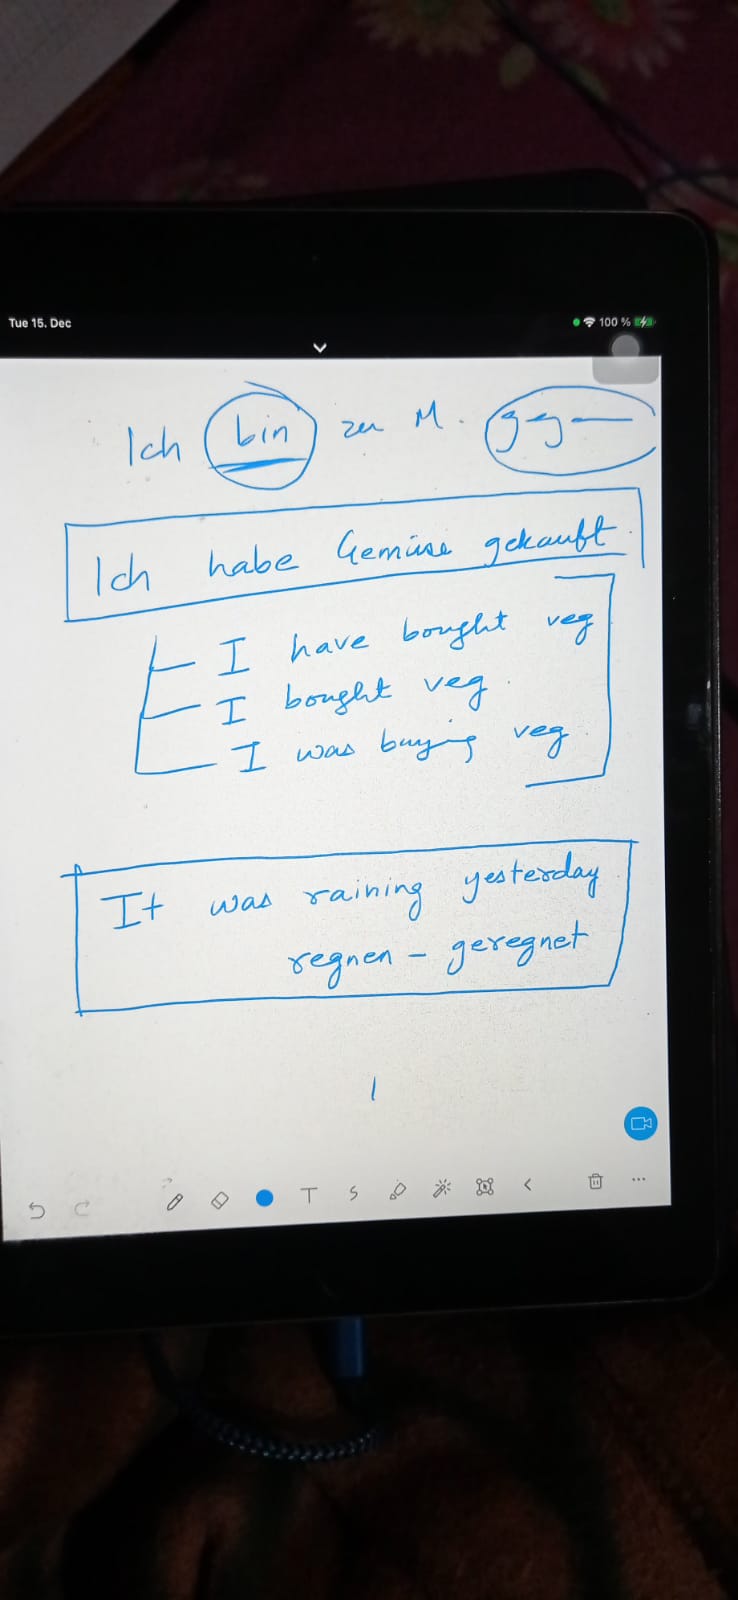 Tue 15. Dec
100 %
Ich bin zu M. geg—
Ich habe Gemüse gekauft.
I have bought veg
I bought veg.
I was buying veg.
It was raining yesterday
regnen - geregnet
T